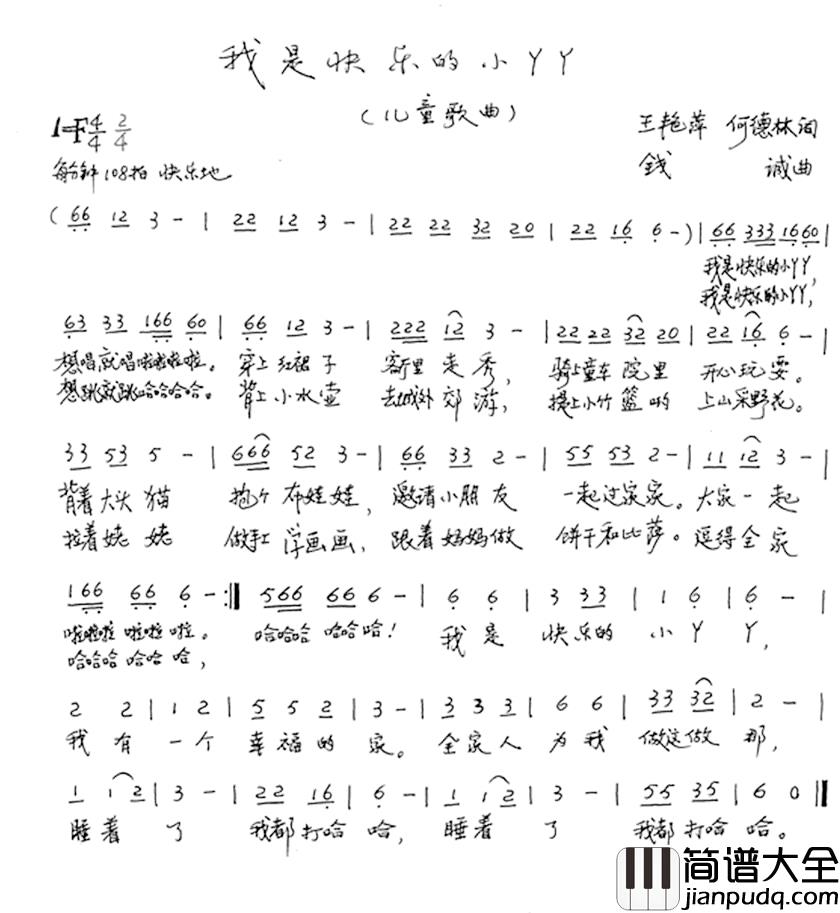 我是快乐的小丫丫
(儿童歌曲)
1=F 4/4 2/4
王艳萍 何德林词
每分钟108拍 快乐地
钱 诚曲
( 66 12 3 - | 22 12 3 - | 22 22 32 20 | 22 16 6 - ) | 66 333 16 60 |
我是快乐的小丫丫,
我是快乐的小丫丫,
63 33 166 60 | 66 12 3 - | 222 12 3 - | 22 22 32 20 | 22 16 6 - |
想唱就唱啦啦啦啦。 穿上红裙子 客厅里走秀, 骑上童车院里 开心玩耍。
想跳就跳哈哈哈哈。 背上小水壶 去城外郊游, 提上小竹篮哟 上山采野花。
33 53 5 - | 666 52 3 - | 66 33 2 - | 55 53 2 - | 11 12 3 - |
背着大头猫 抱个布娃娃, 邀请小朋友 一起过家家。 大家一起
拉着姥姥 做手工学画画, 跟着妈妈做 饼干和比萨。 逗得全家
166 66 6 - :‖ 566 66 6 - | 6 6 | 3 33 | 1 6 | 6 - |
啦啦啦啦啦啦。 哈哈哈哈哈哈! 我是 快乐的 小丫 丫,
哈哈哈哈哈哈,
2 2 | 1 2 | 5 5 2 | 3 - | 3 3 3 | 6 6 | 33 32 | 2 - |
我有 一个 幸福的 家。 全家人 为我 做这做 那,
1 1 2 | 3 - | 22 16 | 6 - | 1 1 2 | 3 - | 55 35 | 6 0 ‖
睡着 了 我都打哈 哈, 睡着 了 我都打哈 哈。
简谱大全
jianpudq.com